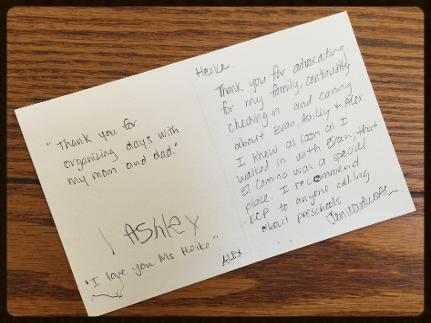 "Thank you for
organizing days with
my mom and dad."
Ashley
"I love you Ms Heike."
Heike
Thank you for advocating
for my family, continually
checking in and caring
about Evan, Ashley & Alex.
I knew as soon as I
walked in with Evan, that
El Camino was a special
place. I recommend
ECP to anyone asking
about preschools
ALEX